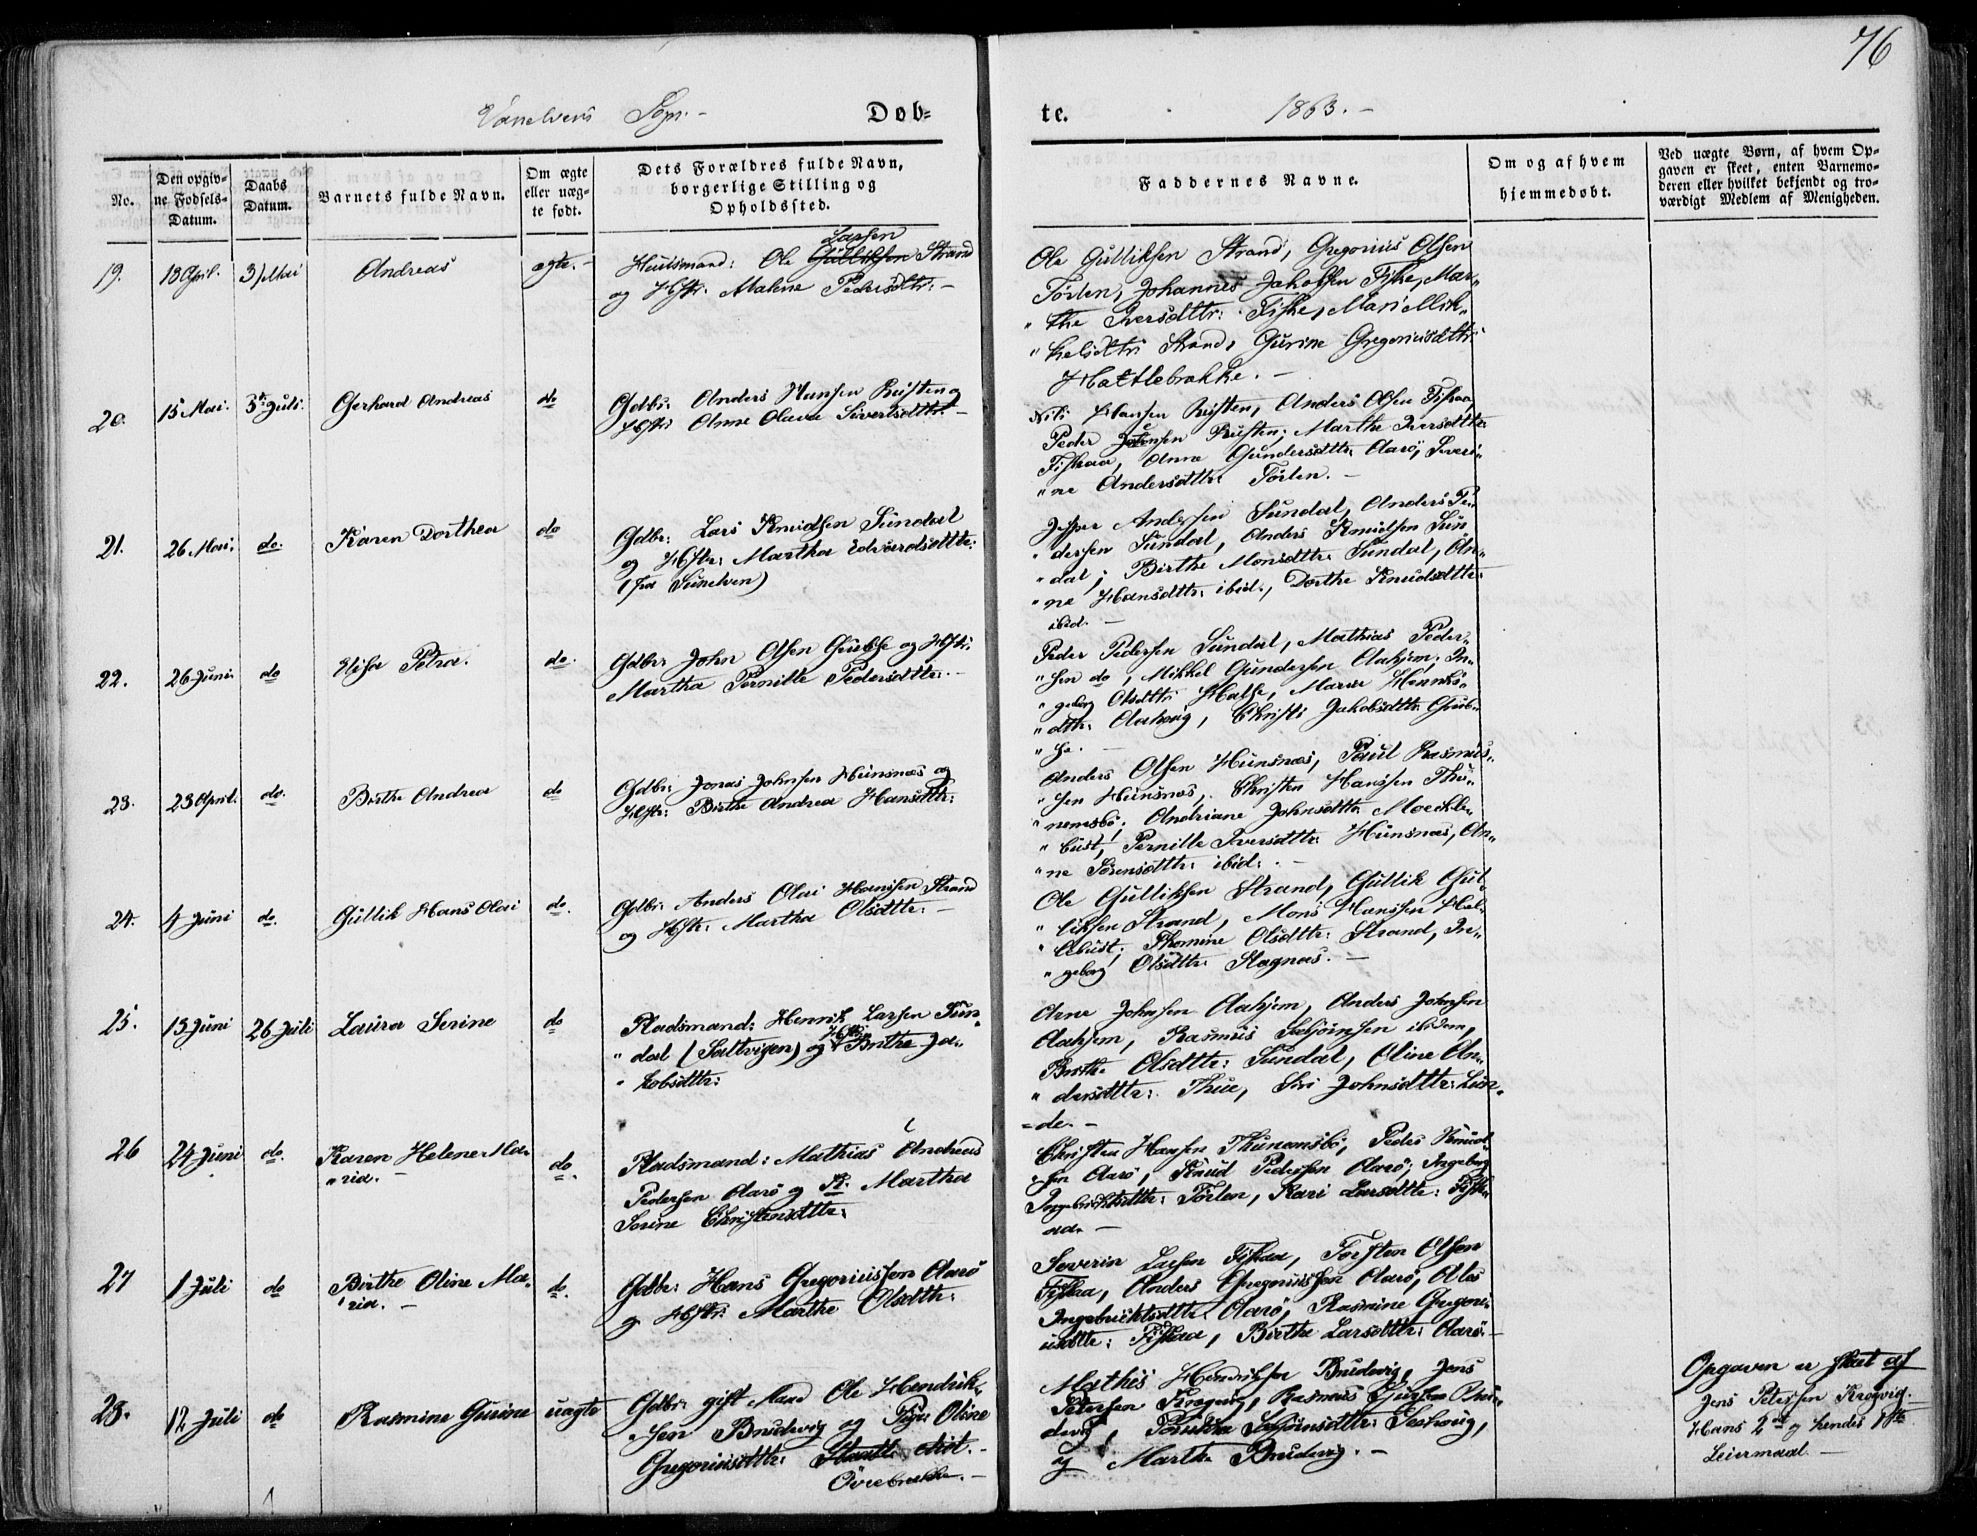 76
Sogn.
Døb=
te.
1863.
No.
Den opgiv=
ne Fødsels=
Datum.
Daabs
Datum.
Barnets fulde Navn.
Om ægte
eller uæg=
te født.
Dets Forældres fulde Navn,
borgerlige Stilling og
Opholdssted.
Faddernes Navne.
Om og af hvem
hjemmedøbt.
Ved uægte Børn, af hvem Op=
gaven er skeet, enten Barnemo=
deren eller hvilket bekjendt og tro=
værdigt Medlem af Menigheden.
19. 18 April. 3/Mai Andreas ægte.
Huusmand: Ole Gulliksen Larsen Strand
og Hstr: Malene Pedersdttr:
Ole Gulliksen Strand, Gregorius Olsen
Johannes Jakobsen Fiske, Mar„
„the Iversdttr: Fiske, Mari Mik„
„kelsdttr Strand, Gurine Gregoriusdttr
Hattlebrække.
20. 15 Mai. 5te Juli. Gerhard Andreas do
Gdbr: Anders Hansen og
Hstr: Anne Olava Sivertsdttr:
Nils Hansen Anders Olsen Fiskaa,
Peder Marthe Iversdttr
Fiskaa, Anne Gundersdttr: Aarö, Severi„
„ne Andersdttr:
21. 26 Mai. do. Karen Dorthea do
Gdbr: Lars Knudsen Sundal
og Hstr: Martha Edvardsdttr:
(fra Sunelven)
Jesper Andersen Sundal, Anders Pe„
„dersen Sundal, Anders Knudsen Sun
„dal; Birthe Monsdttr: Sundal, An„
„ne Hansdttr: ibid., Dorthe Knudsdttr:
ibid.
22. 26 Juni. do Elisa Petra. do.
Gdbr: John Olsen Grubse og Hstr:
Martha Pernille Pedersdttr:
Peder Pedersen Sundal, Mathias Peder„
„sen do, Mikkel Gundersen Aahjem; In„
„geborg Olsdttr: Marie
„dttr: Christi Jakobsdttr Grub„
„se.
23. 23 April. do. Birthe Andrea do
Gdbr: Jonas Johnsen Hunsnæs og
Hstr: Birthe Andrea Hansdttr:
Anders Olsen Hunsnæs, Paul Rasmus„
„sen Hunsnæs, Christen Hanssen Thu„
„nemsbö; Andriane Johnsdttr: Moeckle„
„bust, Pernille Iversdttr: Hunsnæs, An„
„ne Sörensdttr: ibid:
24. 4 Juni do. Gullik Hans Olai do.
Gdbr: Anders Olai Hanssen Strand
og Hstr: Martha Olsdttr:
Ole Gulliksen Strand, Gullik Gul„
„liksen Strand, Mons Hanssen Hel„
„lebust; Thomine Olsdttr: Strand, In„
„geborg Olsdttr: Slagnæs.
25. 15 Juni 26 Juli Laura Serine do
Pladsmand: Henrik Larsen Sun„
„dal (Saltvigen) og Hstr: Birthe Ja„
„kobsdttr:
Arne Johnsen Aahjem, Anders Johnsen
Aahjem, Rasmus ibidem,
Birthe Olsdttr: Sundal, Oline An„
„dersdttr: Thue, Siri Johnsdttr: Lun„
„de.
26 24 Juni do. Karen Helene Ma„
„ria. do.
Pladsmand: Mathias Andreas
Pedersen Aarö og K. Martha
Serine Christensdttr:
Christen Hansen Thunemsbö, Peder Knud„
„sen Aarö, Knud Pedersen Aarö; Ingeborg
Ingebrichtsdttr: Kari Larsdttr: Fisk„
aa.
27 1 Juli do Birthe Oline Ma„
„ria. do.
Gdbr: Hans Gregoriussen Aarö
og Hstr: Marthe Olsdttr:
Severin Larsen Fiskaa, Torsten Olsen
Fiskaa, Anders Gregoriussen Aarö,
Ingebrichtsdttr: Aarö, Rasmine Gregori„
usdttr: Fiskaa, Birthe Larsdttr: Aarö.
28. 12 Juli do Rasmine Gurine uægte
Gdbr: gift Mand Ole Hendrik„
„sen Brudevig og Pige: Oline
Gregoriusdttr:
Övrebrække.
Mathis Hendriksen Brudevig, Jens
Petersen Krogvig, Rasmus
og Marthe Brudevig.
Opgaven er skeet af
Jens Petersen Krogvig.
Hans 2det og hendes 1ste
Leiermaal